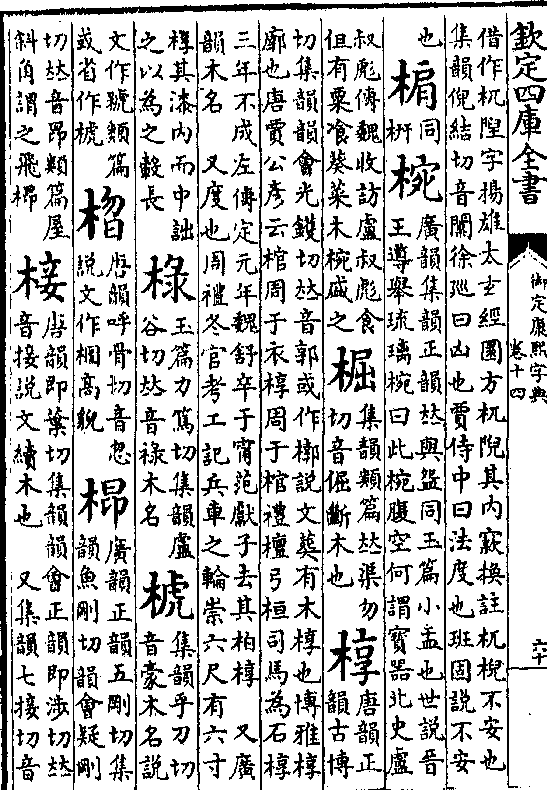 欽定四庫全書
御定康熙字典
卷十四
六十
借作杌隉字揚雄太玄經圜方杌隉其内竅換註杌棿不安也
集韻倪結切音闑徐廵曰凶也賈侍中曰法度也班固說不安
也
椚
同
枅
椀
廣韻集韻正韻𠀤與盌同玉篇小盂也世說晉
王導舉琉璃椀曰此椀腹空何謂寶器北史盧
叔彪傳魏收訪盧叔彪食
但有粟飡葵菜木椀盛之
椐
集韻類篇𠀤渠勿
切音倔斷木也
椁
唐韻正
韻古博
切集韻韻會光鑊切𠀤音郭或作槨說文葬有木椁也博雅椁
廓也唐賈公彦云棺周于衣椁周于棺禮檀弓桓司馬為石椁
三年不成左傳定元年魏舒卒于甯范獻子去其柏椁 又廣
韻木名 又度也周禮冬官考工記兵車之輪崇六尺有六寸
椁其漆内而中詘
之以為之轂長
椂
玉篇力篤切集韻盧
谷切𠀤音祿木名
椃
集韻乎刀切
音豪木名說
文作號類篇
或省作㯱
㮯
唐韻呼骨切音忽
說文作棝高貌
㭿
廣韻正韻五剛切集
韻魚剛切韻會疑剛
切𠀤音昂類篇屋
斜角謂之飛㭿
椄
唐韻即葉切集韻韻會正韻即涉切𠀤
音接說文續木也 又集韻七接切音